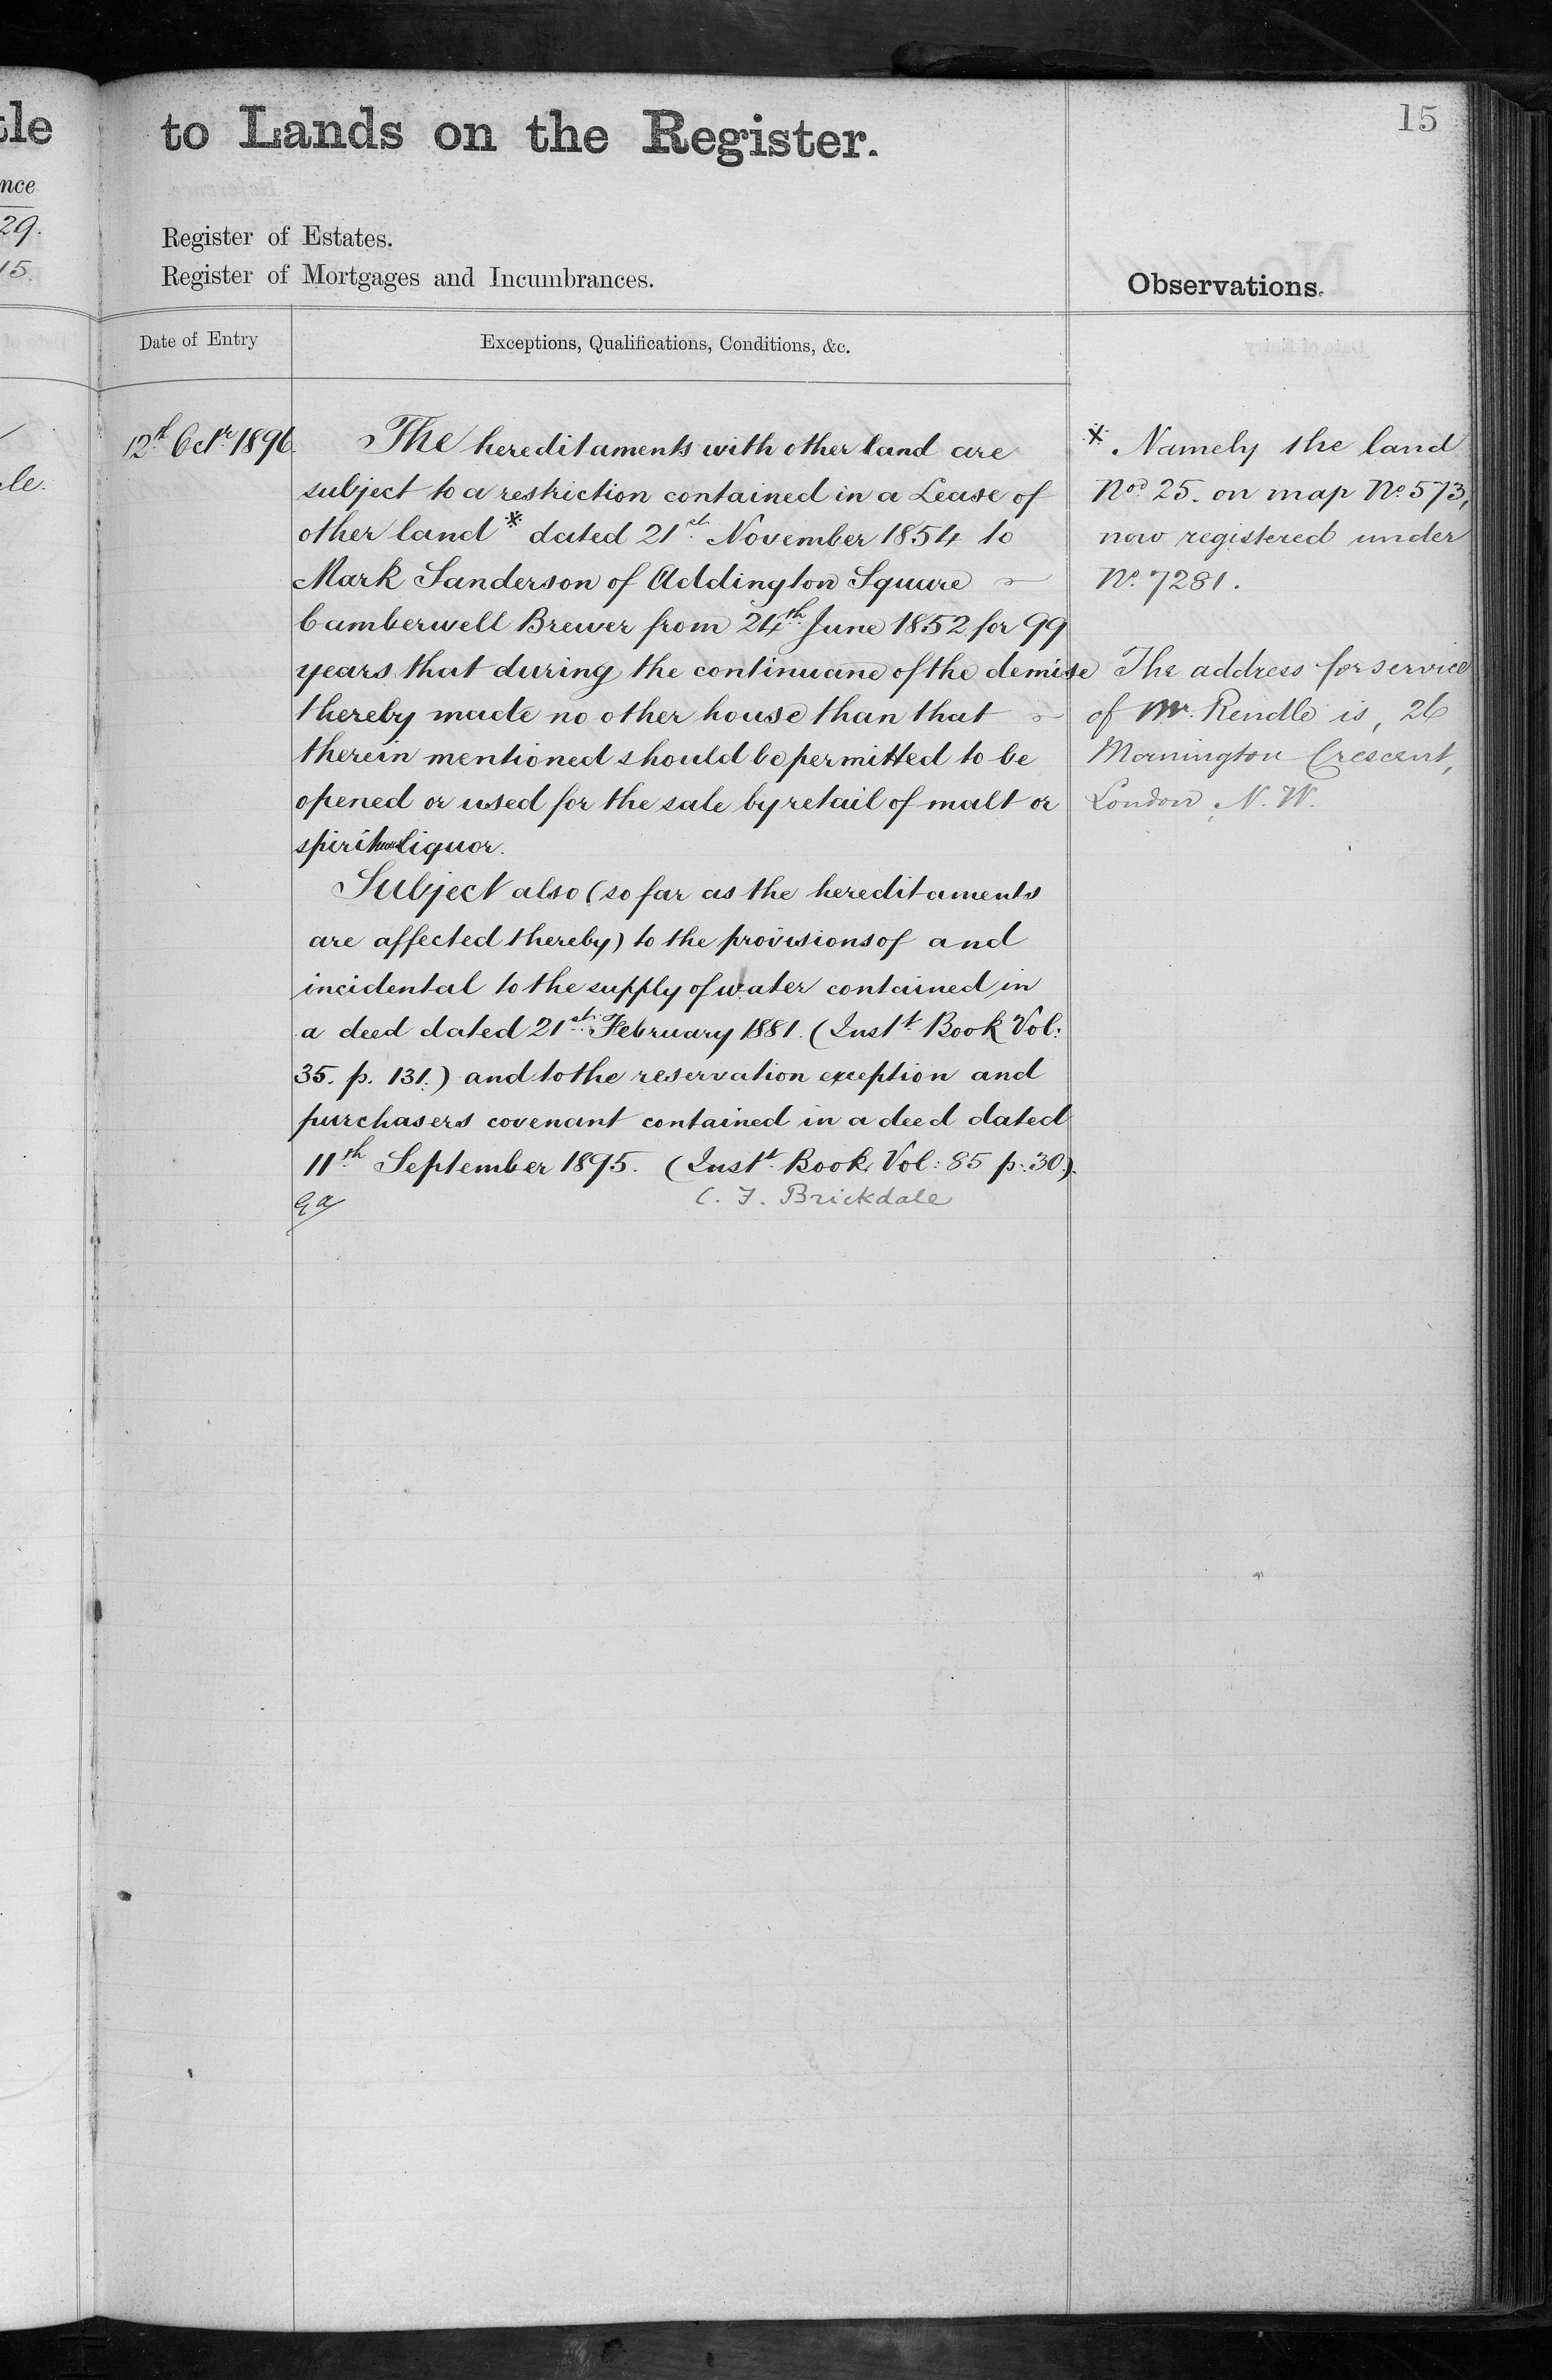 tle
nce
29.
15.
le.
to Lands on the Register.
15
Register of Estates.
Register of Mortgages and Incumbrances.
Observations.
Date of Entry
Exceptions, Qualifications, Conditions, &c.
12th Octr. 1896.
The hereditaments with other land are
subject to a restriction contained in a Lease of
other land * dated 21st. November 1854 to
Mark Sanderson of Addington Square
Camberwell Brewer from 24th June 1852 for 99
years that during the continuance of the demise
thereby made no other house than that
therein mentioned should be permitted to be
opened or used for the sale by retail of malt or
spirituous liquor.
Subject also (so far as the hereditaments
are affected thereby) to the provisions of and
incidental to the supply of water contained in
a deed dated 21st. February 1881. (Instt. Book Vol:
35. p. 131.) and to the reservation exception and
purchasers covenant contained in a deed dated
11th September 1895. (Instt. Book Vol: 85 p. 30.).
C. F. Brickdale
* Namely the land
Nod 25. on map No. 573,
now registered under
No. 7281.
The address for service
of Mr. Rendle is, 26
Mornington Crescent,
London, N. W.